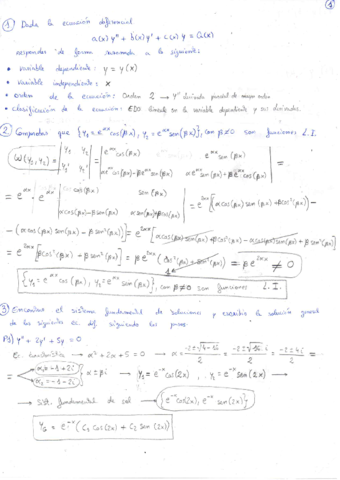 1
① Dada la ecuación diferencial
a(x) y'' + b(x) y' + c(x) y = G(x)
responder de forma razonada a lo siguiente:
• variable dependiente: y = y(x)
• variable independiente: x
• orden de la ecuación: Orden 2 → y'' derivada parcial de mayor orden
• clasificación de la ecuación: EDO lineal en la variable dependiente y sus derivadas.
② Comprobar que {y₁ = e^{αx} cos(βx), y₂ = e^{αx} sen(βx)}, con β≠0 son funciones L.I.
W(y₁, y₂) = |y₁ y₂ / y₁' y₂'| = |e^{αx} cos(βx) e^{αx} sen(βx) / αe^{αx} cos(βx) - βe^{αx} sen(βx) αe^{αx} sen(βx) + βe^{αx} cos(βx)| =
= e^{αx} · e^{αx} |cos(βx) sen(βx) / αcos(βx) - βsen(βx) αsen(βx) + βcos(βx)| = e^{2αx} [(αcos(βx) sen(βx) + βcos²(βx)) -
- (αcos(βx) sen(βx) - βsen²(βx))] = e^{2αx} [αcos(βx) sen(βx) + βcos²(βx) - αcos(βx) sen(βx) + βsen²(βx)]
= e^{2αx} [βcos²(βx) + βsen²(βx)] = βe^{2αx} (cos²(βx) + sen²(βx)) = βe^{2αx} ≠ 0
1
{y₁ = e^{αx} cos(βx), y₂ = e^{αx} sen(βx)}, con β≠0 son funciones L.I.
③ Encontrar el sistema fundamental de soluciones y escribir la solución general
de las siguientes ec. dif. siguiendo los pasos.
y'' + 2y' + 5y = 0
Ec. característica → α² + 2α + 5 = 0 → α = (-2±√(4-20))/2 = (-2±√-16)/2 = (-2±4i)/2 =
= α₁ = -1+2i α₂ = -1-2i α±βi → y₁ = e^{-x} cos(2x), y₂ = e^{-x} sen(2x) →
→ Sist. fundamental de sol → {e^{-x} cos(2x), e^{-x} sen(2x)}
y_G = e^{-x} (C₁ cos(2x) + C₂ sen(2x))